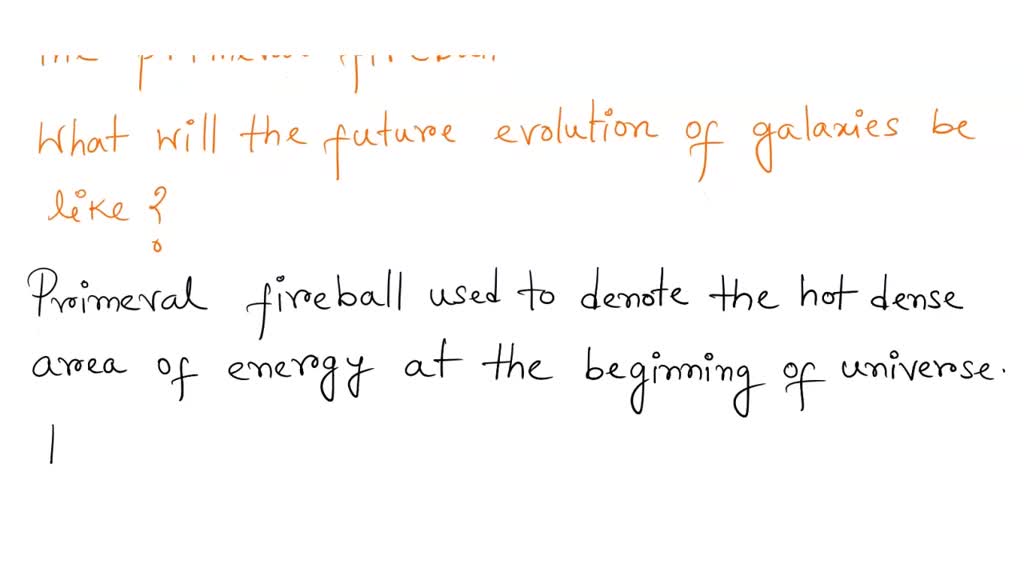 the primeval fireball
What will the future evolution of galaxies be
like?
Primeval fireball used to denote the hot dense
area of energy at the beginning of universe.